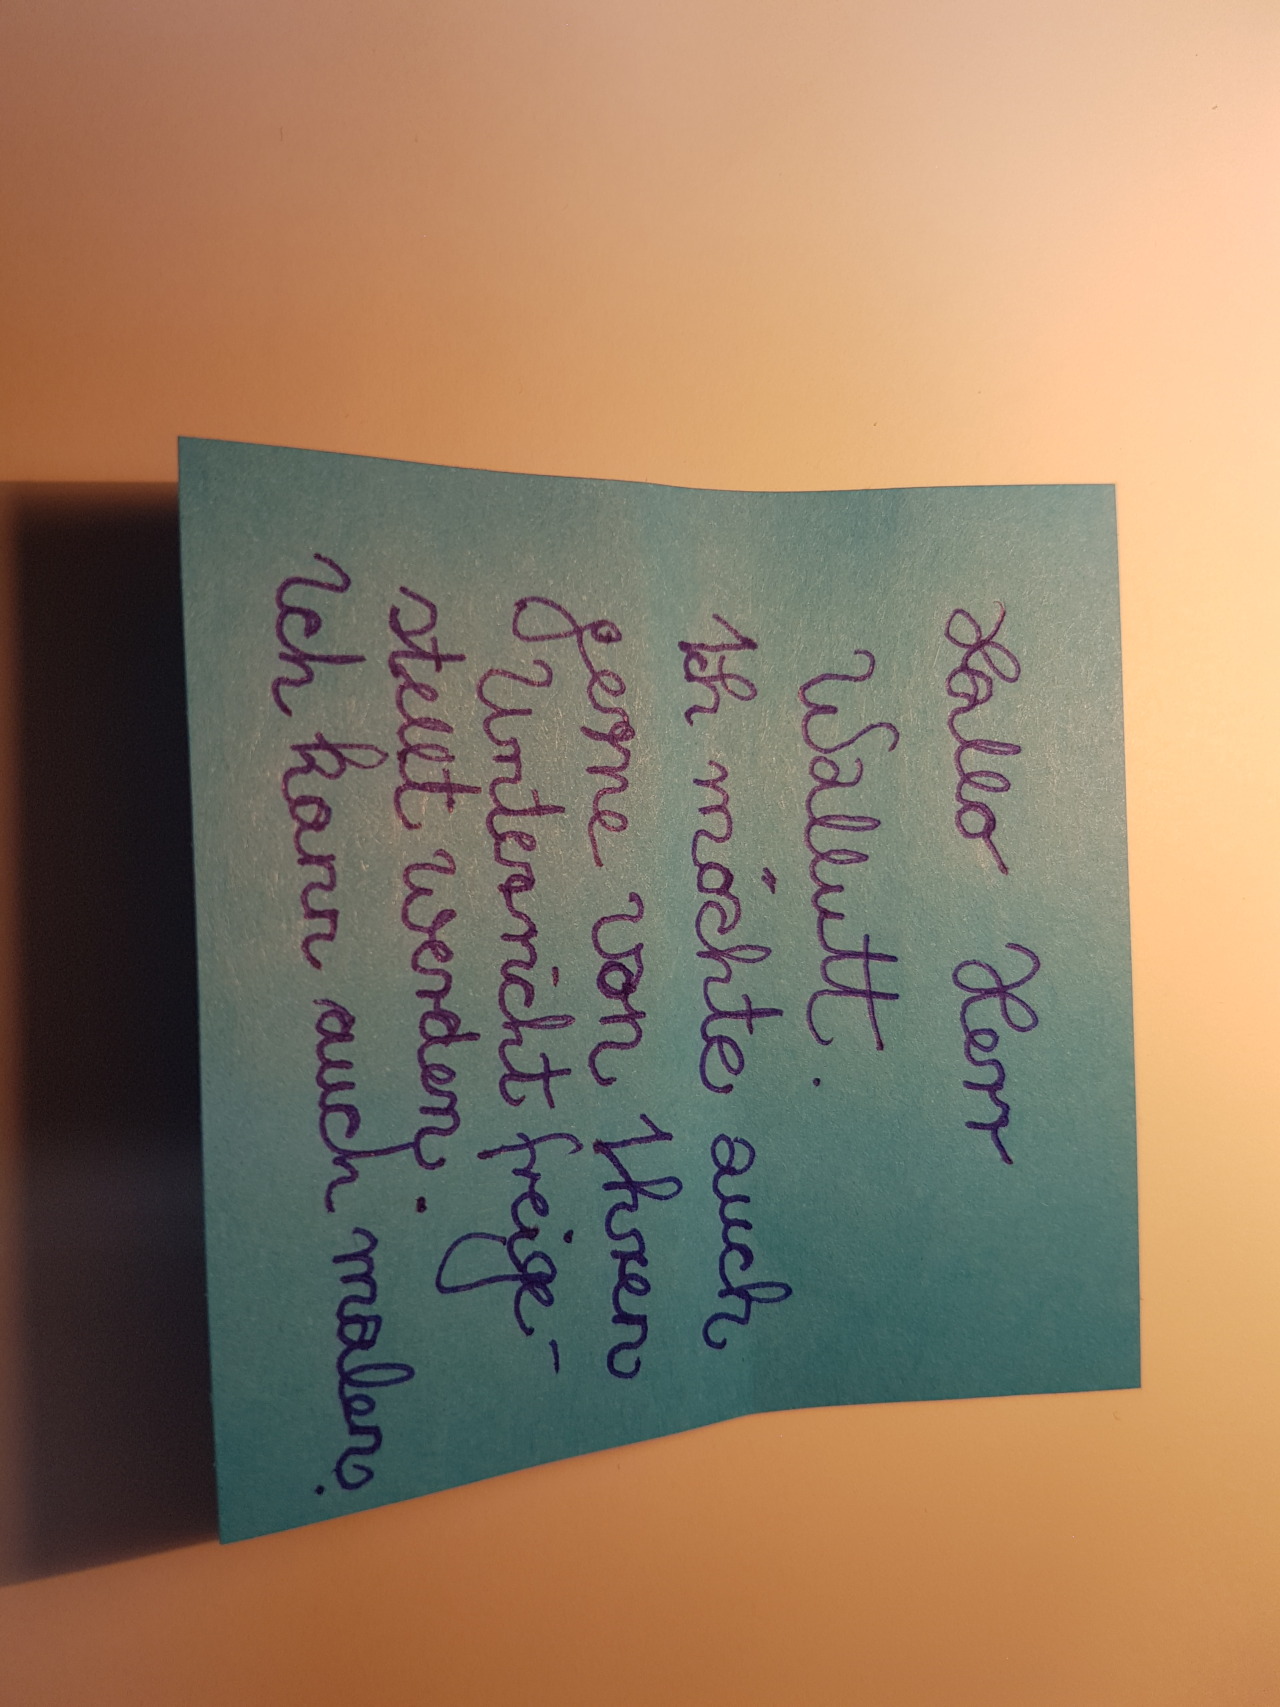 Hallo Herr
Wallutt.
Ich möchte auch
gerne von Ihren
Unterricht freige-
stellt werden.
Ich kann auch malen.